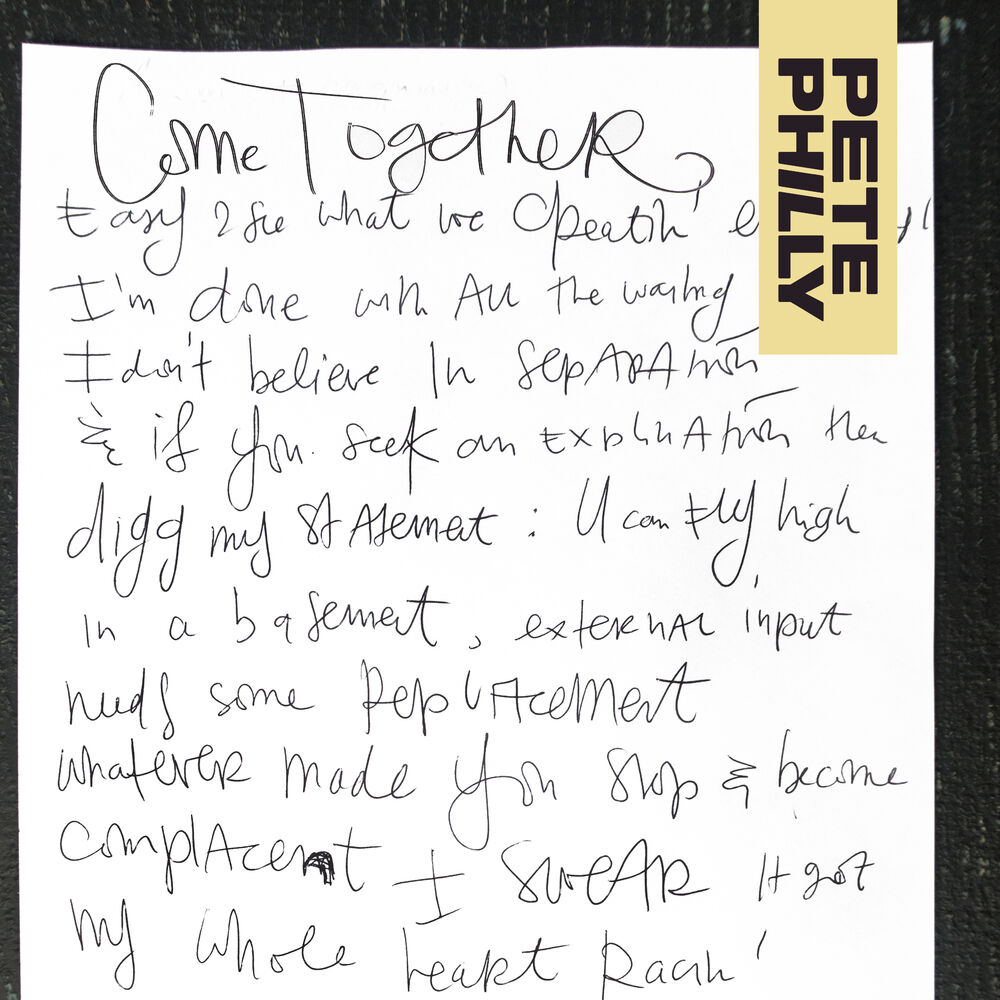 Come Together,
Easy 2 see what we Creatin'
I'm done with All the waiting
I don't believe In Separation
& if you seek an Explanation then
digg my statement : U can Fly high
In a basement, external input
needs some Replacement
Whatever made you stop & become
complacent I swear It got
my whole heart Racin'
PETE
PHILLY